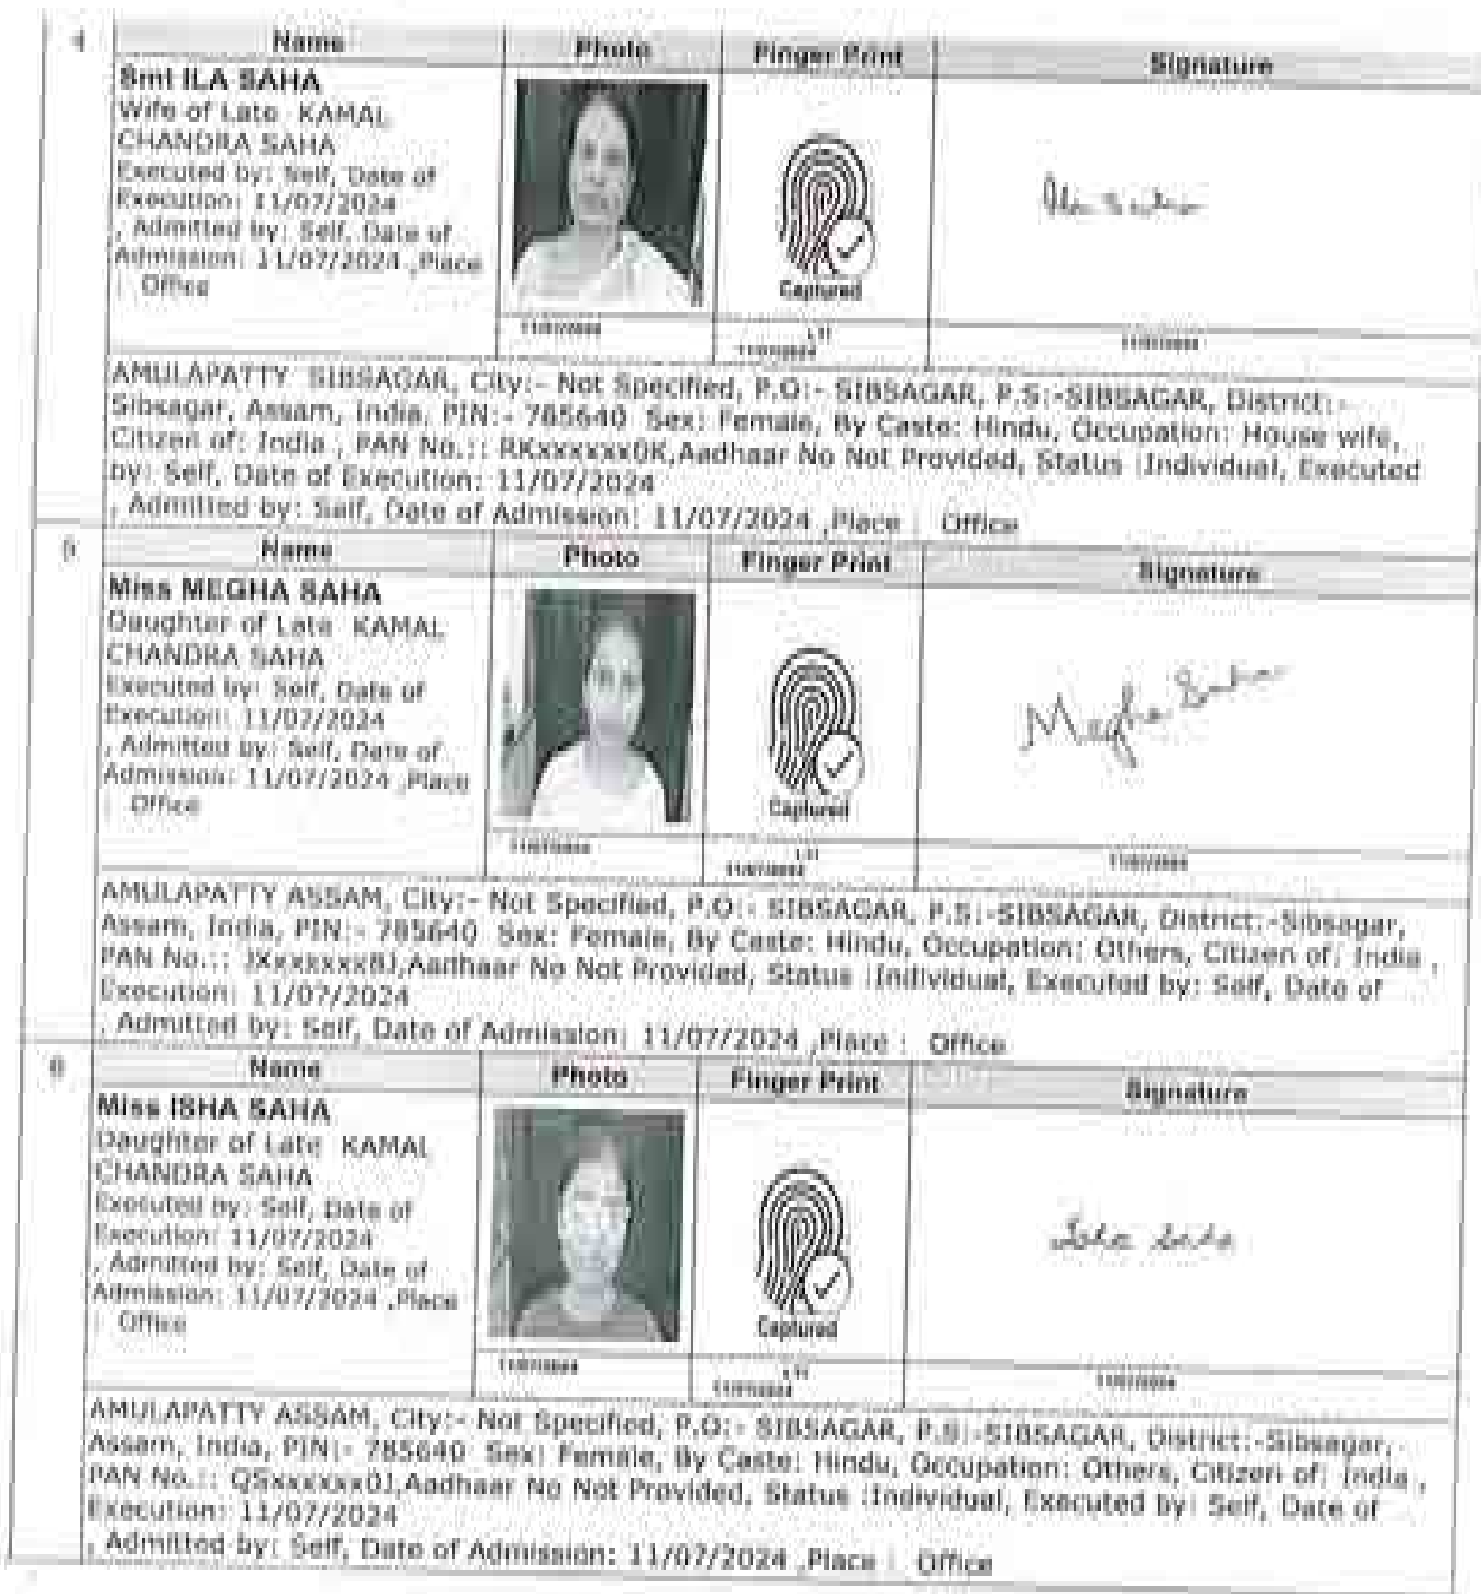 4
Name Photo Finger Print Signature
Smt ILA SAHA
Wife of Late KAMAL
CHANDRA SAHA
Executed by: Self, Date of
Execution: 11/07/2024
, Admitted by: Self, Date of
Admission: 11/07/2024 ,Place
: Office
Captured
Ila Saha
11/07/2024 LTI
11/07/2024 11/07/2024
AMULAPATTY SIBSAGAR, City:- Not Specified, P.O:- SIBSAGAR, P.S:-SIBSAGAR, District:-
Sibsagar, Assam, India, PIN:- 785640 Sex: Female, By Caste: Hindu, Occupation: House wife,
Citizen of: India , PAN No.:: RKxxxxxx0K,Aadhaar No Not Provided, Status :Individual, Executed
by: Self, Date of Execution: 11/07/2024
, Admitted by: Self, Date of Admission: 11/07/2024 ,Place : Office
5
Name Photo Finger Print Signature
Miss MEGHA SAHA
Daughter of Late KAMAL
CHANDRA SAHA
Executed by: Self, Date of
Execution: 11/07/2024
, Admitted by: Self, Date of
Admission: 11/07/2024 ,Place
: Office
Captured
Megha Saha
11/07/2024 LTI
11/07/2024 11/07/2024
AMULAPATTY ASSAM, City:- Not Specified, P.O:- SIBSAGAR, P.S:-SIBSAGAR, District:-Sibsagar,
Assam, India, PIN:- 785640 Sex: Female, By Caste: Hindu, Occupation: Others, Citizen of: India ,
PAN No.:: JXxxxxxx8J,Aadhaar No Not Provided, Status :Individual, Executed by: Self, Date of
Execution: 11/07/2024
, Admitted by: Self, Date of Admission: 11/07/2024 ,Place : Office
6
Name Photo Finger Print Signature
Miss ISHA SAHA
Daughter of Late KAMAL
CHANDRA SAHA
Executed by: Self, Date of
Execution: 11/07/2024
, Admitted by: Self, Date of
Admission: 11/07/2024 ,Place
: Office
Captured
Isha Saha
11/07/2024 LTI
11/07/2024 11/07/2024
AMULAPATTY ASSAM, City:- Not Specified, P.O:- SIBSAGAR, P.S:-SIBSAGAR, District:-Sibsagar,
Assam, India, PIN:- 785640 Sex: Female, By Caste: Hindu, Occupation: Others, Citizen of: India ,
PAN No.:: QSxxxxxx0J,Aadhaar No Not Provided, Status :Individual, Executed by: Self, Date of
Execution: 11/07/2024
, Admitted by: Self, Date of Admission: 11/07/2024 ,Place : Office